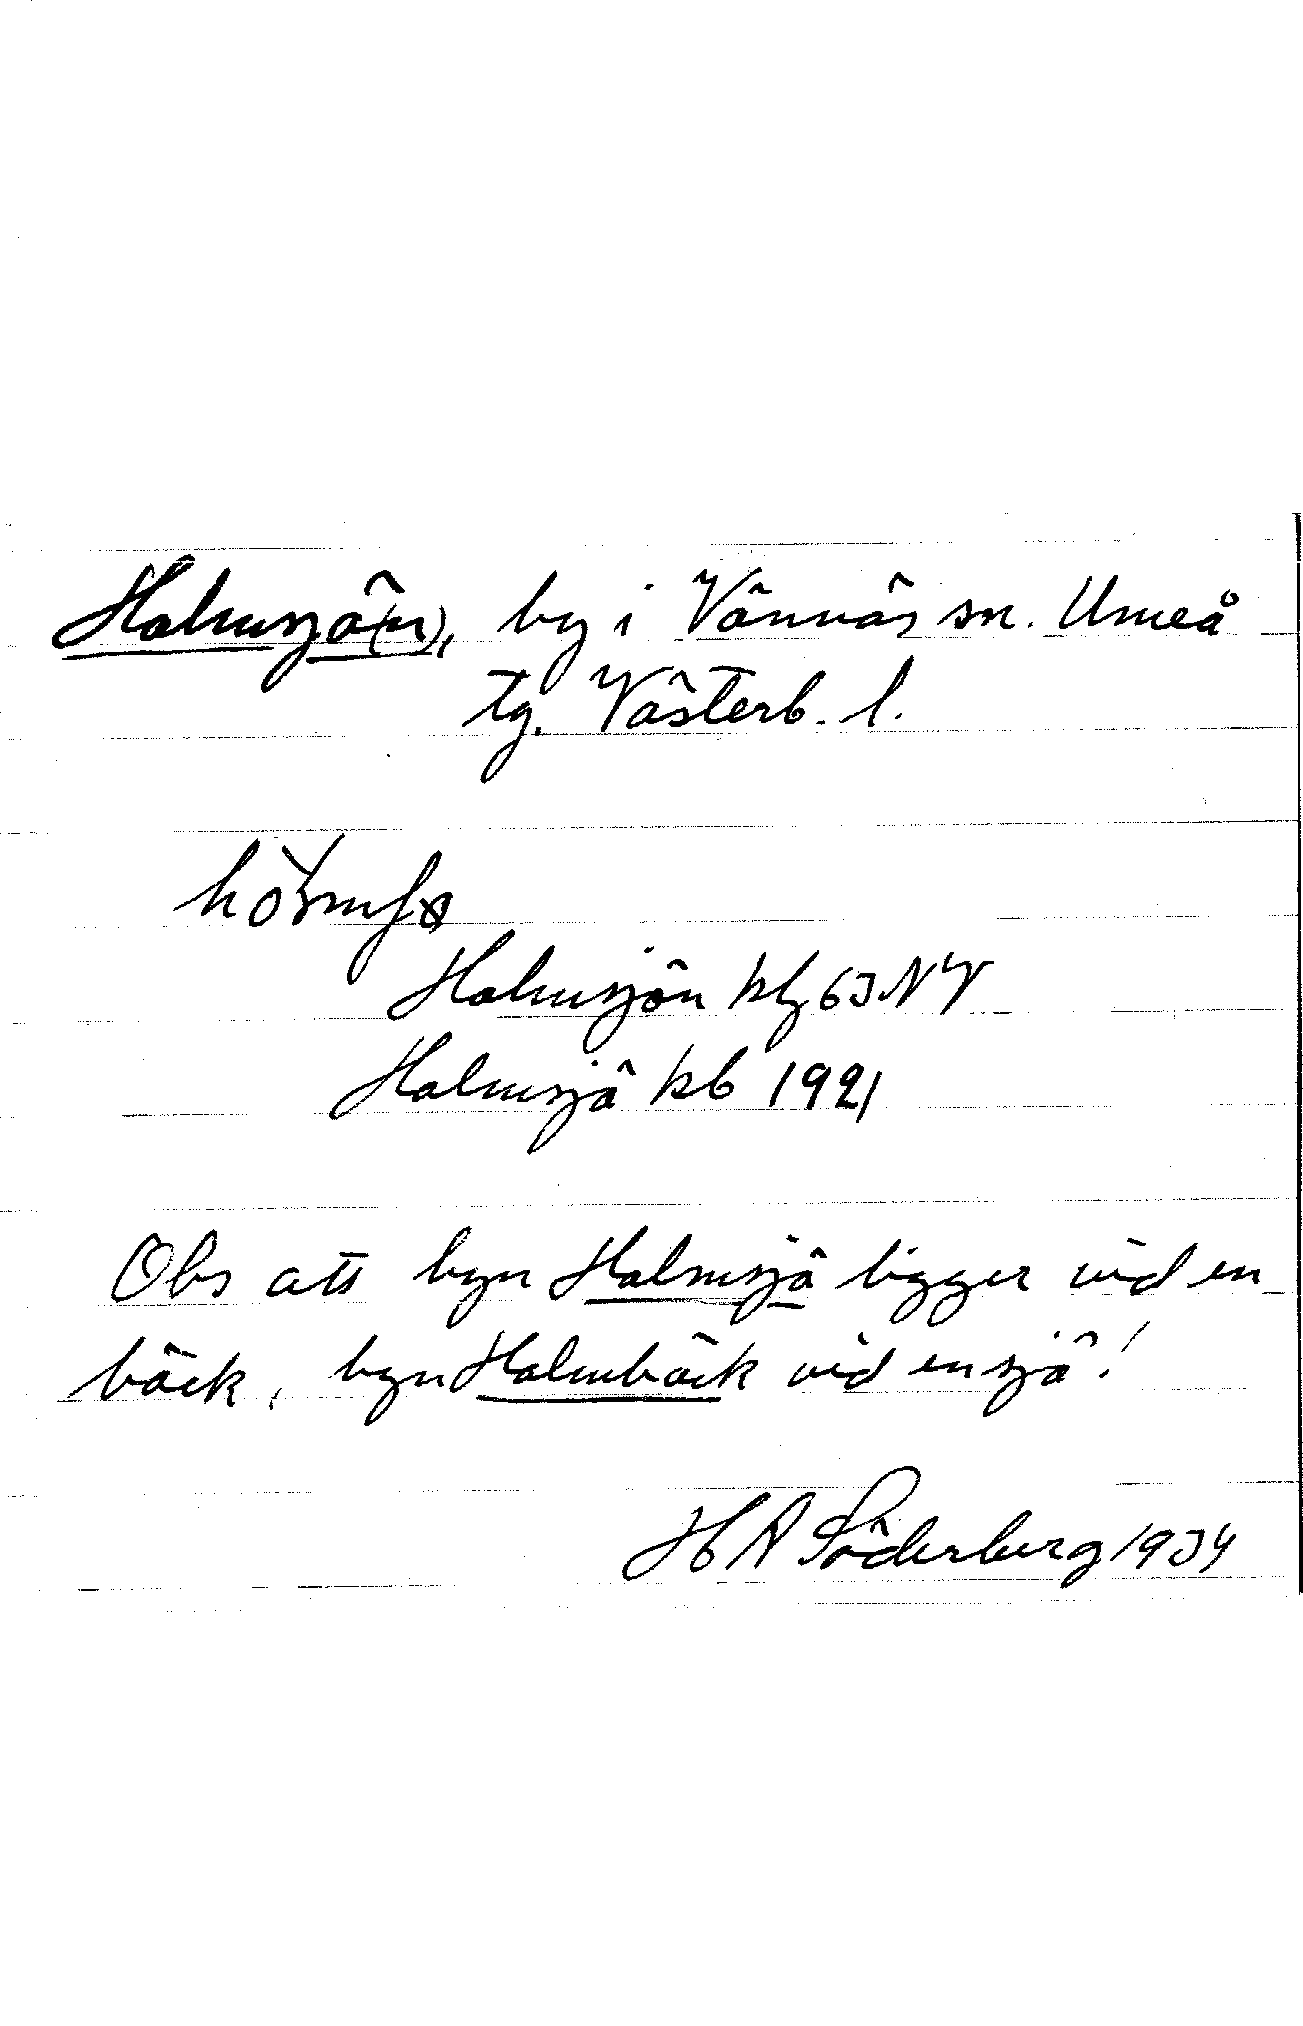 Holmsjö(n), by i Vännäs sn. Umeå
tg. Västerb. l.
Holmsjön kbg 63 NV
Holmsjö kb 1921
Obs att byn Holmsjö ligger vid en
bäck, byn Holmbäck vid en sjö!
H A Söderberg 1934